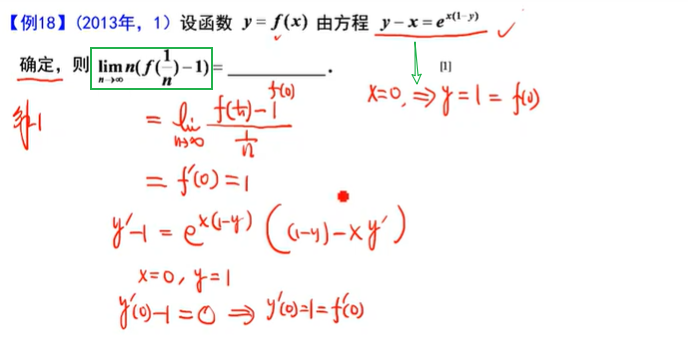 【例18】(2013年，1) 设函数 y = f(x) 由方程 y − x = e^{x(1−y)}
确定，则 lim_{n→∞} n(f(1/n) − 1) = ________ .
[1]
x=0, ⇒ y = 1 = f(0)
f(0)
= lim_{n→∞} (f(1/n) − 1)/(1/n)
= f'(0) = 1
y' − 1 = e^{x(1−y)} ((1−y) − xy')
x=0, y=1
y'(0) − 1 = 0 ⇒ y'(0) = 1 = f'(0)